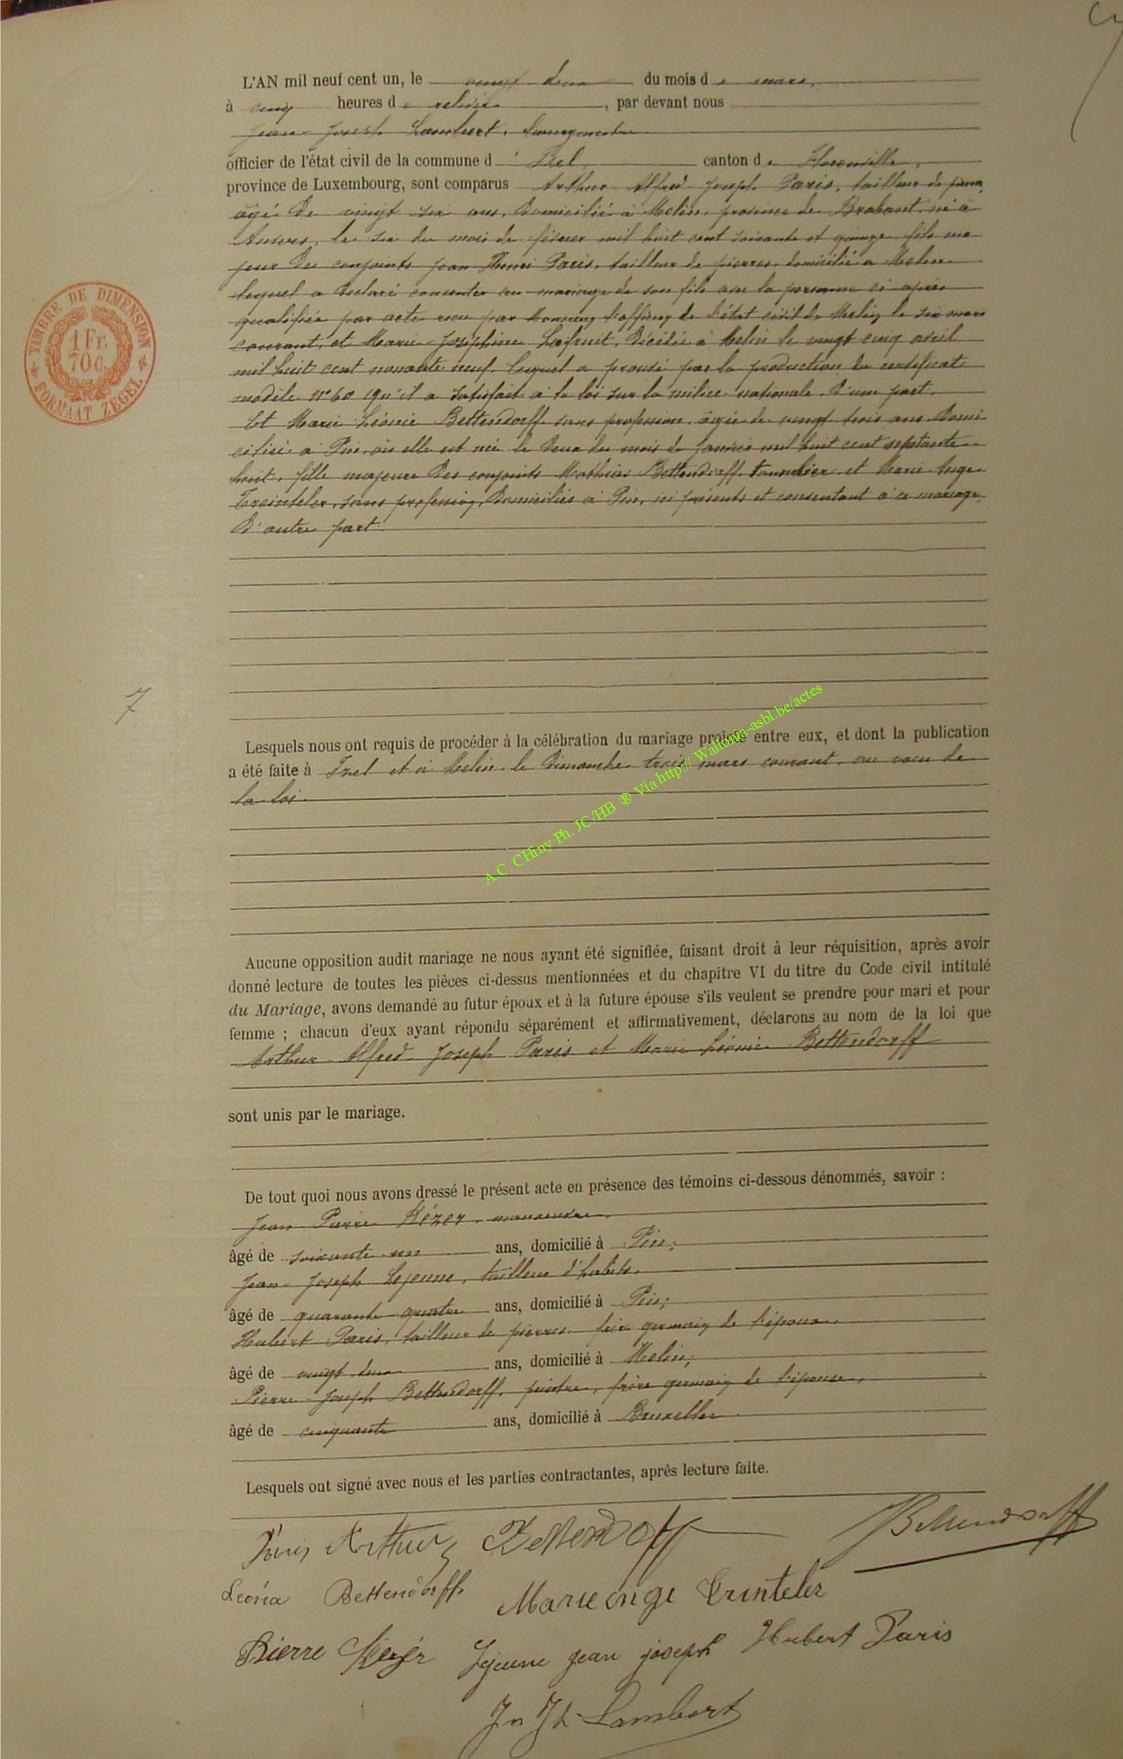 L'AN mil neuf cent un, le vingt deux du mois de mars,
à cinq heures de relevée, par devant nous
Jean-Joseph Lambert, bourgmestre
officier de l'état civil de la commune d'Izel, canton de Florenville,
province de Luxembourg, sont comparus Arthur Alfred Joseph Paris, tailleur de pierres,
âgé de vingt six ans, domicilié à Melin, province de Brabant, né à
Anvers, le six du mois de février mil huit cent soixante et quinze, fils ma-
jeur des conjoints Jean Henri Paris, tailleur de pierres, domicilié à Melin
lequel a déclaré consentir au mariage de son fils avec la personne ci après
qualifiée par acte reçu par Monsieur l'officier de l'état civil de Melin le six mars
courant, et Marie-Joséphine Lafruit, décédée à Melin le vingt cinq avril
mil huit cent nonante neuf, lequel a prouvé par la production du certificat
modèle n° 60 qu'il a satisfait à la loi sur la milice nationale, d'une part.
Et Marie Léonie Bettendorff sans profession, âgée de vingt trois ans, domi-
ciliée à Pin, où elle est née le deux du mois de janvier mil huit cent septante
huit, fille majeure des conjoints Mathias Bettendorff, tourneur et Marie Ange
Treinteler, sans profession, domiciliés à Pin, ici présents et consentant à ce mariage,
d'autre part.
TIMBRE DE DIMENSION
1 Fr.
70 c.
FORMAAT ZEGEL
7
Lesquels nous ont requis de procéder à la célébration du mariage projeté entre eux, et dont la publication
a été faite à Izel et à Melin le dimanche trois mars courant, au vœu de
la loi.
A.C. CHiny Ph. JC/HB ® Via http:// Wallonia-asbl.be/actes
Aucune opposition audit mariage ne nous ayant été signifiée, faisant droit à leur réquisition, après avoir
donné lecture de toutes les pièces ci-dessus mentionnées et du chapitre VI du titre du Code civil intitulé
du Mariage, avons demandé au futur époux et à la future épouse s'ils veulent se prendre pour mari et pour
femme ; chacun d'eux ayant répondu séparément et affirmativement, déclarons au nom de la loi que
Arthur Alfred Joseph Paris et Marie Léonie Bettendorff
sont unis par le mariage.
De tout quoi nous avons dressé le présent acte en présence des témoins ci-dessous dénommés, savoir :
Jean Pierre Kézer, manœuvre,
âgé de soixante un ans, domicilié à Pin;
Jean-Joseph Lejeune, tailleur d'habits,
âgé de quarante quatre ans, domicilié à Pin;
Hubert Paris, tailleur de pierres, frère germain de l'époux,
âgé de vingt deux ans, domicilié à Melin;
Pierre-Joseph Bettendorff, peintre, frère germain de l'épouse,
âgé de cinquante ans, domicilié à Bruxelles
Lesquels ont signé avec nous et les parties contractantes, après lecture faite.
Paris Arthur Bettendorff JBettendorff
Leónia Bettendorff Marie ange Trinteler
Pierre Kezér Lejeune jean joseph Hubert Paris
Jn Jh Lambert